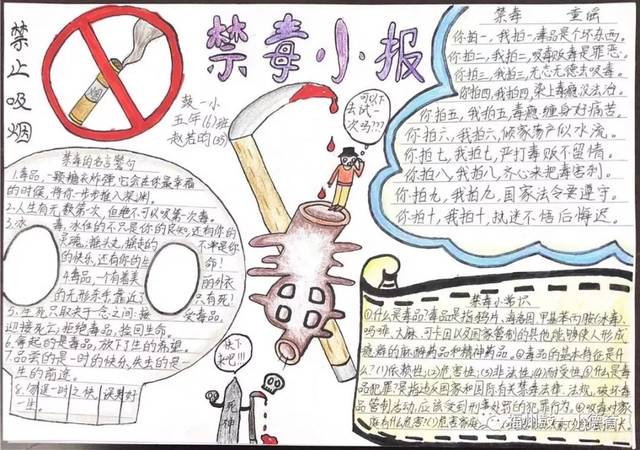 禁毒小报
禁止吸烟
鼓一小
五年(6)班
赵若昀(35)
禁毒的名言警句
1.毒品,一颗糖衣炸弹,它会在你最幸福
的时候,将你一步步推入深渊。
2.人生有无数第一次,但绝不可以吸第一次毒。
3.冰毒,冰住的不只是你的良知,还有你的
灵魂。摇头丸,摇走的不单是你
的快乐,还有你的生命!
4.毒品,一个有着美丽的外衣
的无形杀手,靠近了只有死!
5.生死只取决于一念之间:接受毒品,
迎接死亡;拒绝毒品,挽回生命。
6.拿起的是毒品,放下了生的希望。
7.品尝的是一时的快乐,失去的是一
生的前途。
8.勿逞一时之快,误其一
一生。
可以下
去试一
次吗???
快下
来吧!!!
死神
禁毒 童谣
你拍一,我拍一,毒品是个坏东西。
你拍二,我拍二,吸毒贩毒是罪恶。
你拍三,我拍三,无忘无德去吸毒。
你拍四,我拍四,染上毒瘾没法治。
你拍五,我拍五,毒瘾缠身好痛苦。
你拍六,我拍六,倾家荡产似水流。
你拍七,我拍七,严打毒贩不留情。
你拍八,我拍八,齐心来把毒害刹。
你拍九,我拍九,国家法令要遵守。
你拍十,我拍十,执迷不悟后悔迟。
禁毒小常识
①什么是毒品?毒品是指鸦片、海洛因、甲基苯丙胺(冰毒)、
吗啡、大麻、可卡因以及国家管制的其他能够使人形成
瘾癖的麻醉药品和精神药品。②毒品的基本特征是什
么?(1)依赖性;(2)危害性;(3)非法性;(4)耐受性。③什么是毒
品犯罪?是指违反国家和国际有关禁毒法律、法规,破坏毒
品管制活动,应该受到刑事处罚的犯罪行为。④吸毒对家
庭有什么危害?(1)危害家庭